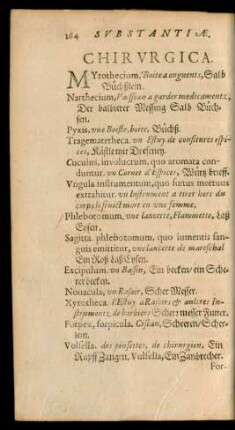 164 SVBSTANTIÆ.
CHIRVRGICA.
MYrothecium, Boite a onguents, Salb
Büchßlein.
Narthecium, Vaisseau a garder medicaments,
Der balbierer Messing Salb Büch-
sen.
Pyxis, vne Boeste, boite. Büchß.
Tragematotheca. vn Estuy de confitures espi-
ces,
Cuculus, involucrum, quo aromata con-
duntur. vn Cornet d'Espices, Würtz brieff.
Vngula instrumentum, quo fœtus mortuus
extrahitur. vn Instrument a tirer hors du
corps le faict mort en vne femme.
Phlebotomum, vne lancette, Flammette, Laß
Eysen.
Sagitta phlebotomum, quo iumentis san-
guis emittitur, vne lancette de mareschal
Ein Roß Laß Eysen.
Excipulum. vn Bassin, Ein becken/ ein Sche-
rer becken.
Nouacula, vn Rasoir, Scher Messer.
Xyrotheca. l'Estuy a Rasoirs & autres In-
struments, de barbiers Scher messer Futter.
Forpex, forpicula. Ciseau, Scheeren/ Scher-
lein.
Volsella. des pinsettes, de chirurgien, Ein
Rupff Zangen. Vulsella, Ein Zanbrecher.
For-